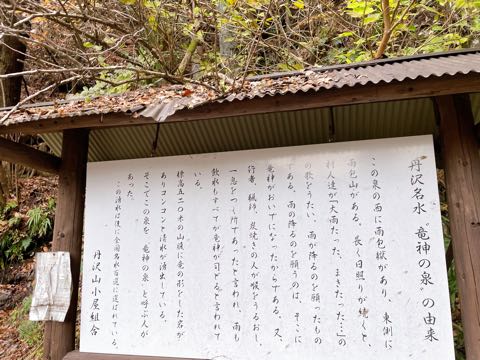 丹沢名水“竜神の泉”の由来
この泉の西に雨包嶽があり、東側に
雨包山がある。長く日照りが続くと、
村人達が「大雨たった、まきたった…」の
の歌をうたい、雨が降るのを願ったもの
である。雨の降るのを願うのは、そこに
竜神がおいでになったからである。又、
行者、猟師、炭焼きの人が喉をうるおし、
一息をつく所であったと言われ、雨も
飲水もすべてが竜神が司どると言われて
いる。
標高五二〇米の山腹に竜の形をした岩が
ありコンコンと清水が湧出している。
そこでこの泉を、竜神の泉と呼ぶ人が
あった。
この湧水は後に全国名水百選に選ばれている。
丹沢山小屋組合